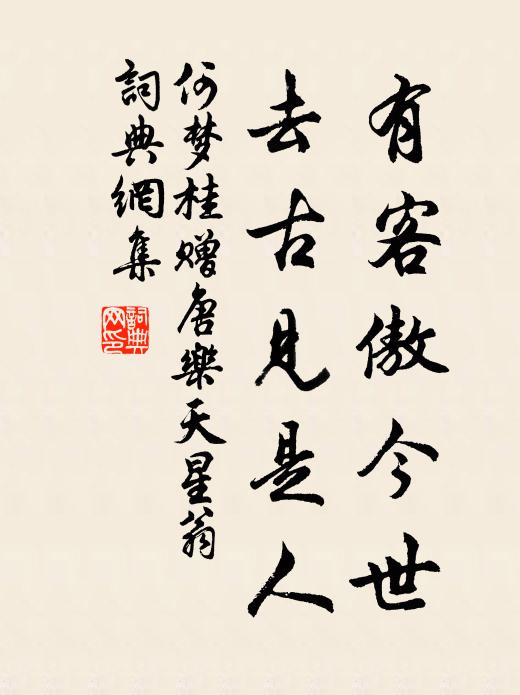 有客傲今世
去古见是人
何梦桂赠唐乐天星翁
词典網集
词典网印